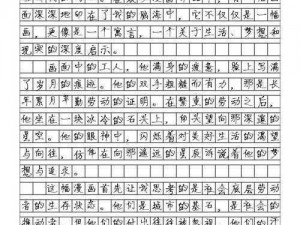 画深深地印在了我的脑海中，它不仅仅是一幅
画，更像是一个寓言，一个关于生活、梦想和
现实的深度启示。
画面中的工人，他满身的疲惫，脸上写满
了岁月的痕迹。他的双手粗糙而有力，那是长
年累月辛勤劳动的证明。在繁重的劳动之后，
他坐在一块冰冷的石头上，仰望着那深邃的
星空。他的眼神中，闪烁着对美好生活的渴望
与向往，仿佛在向那遥远的星辰诉说着他的梦
想与追求。
这幅漫画首先让我思考的是社会底层劳动
者的生存状态。他们是城市的基石，是社会的